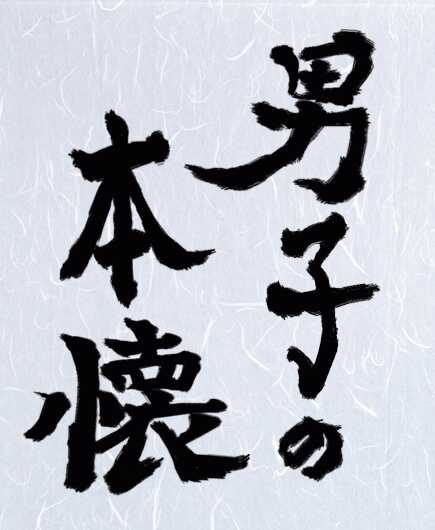 男子の
本懐